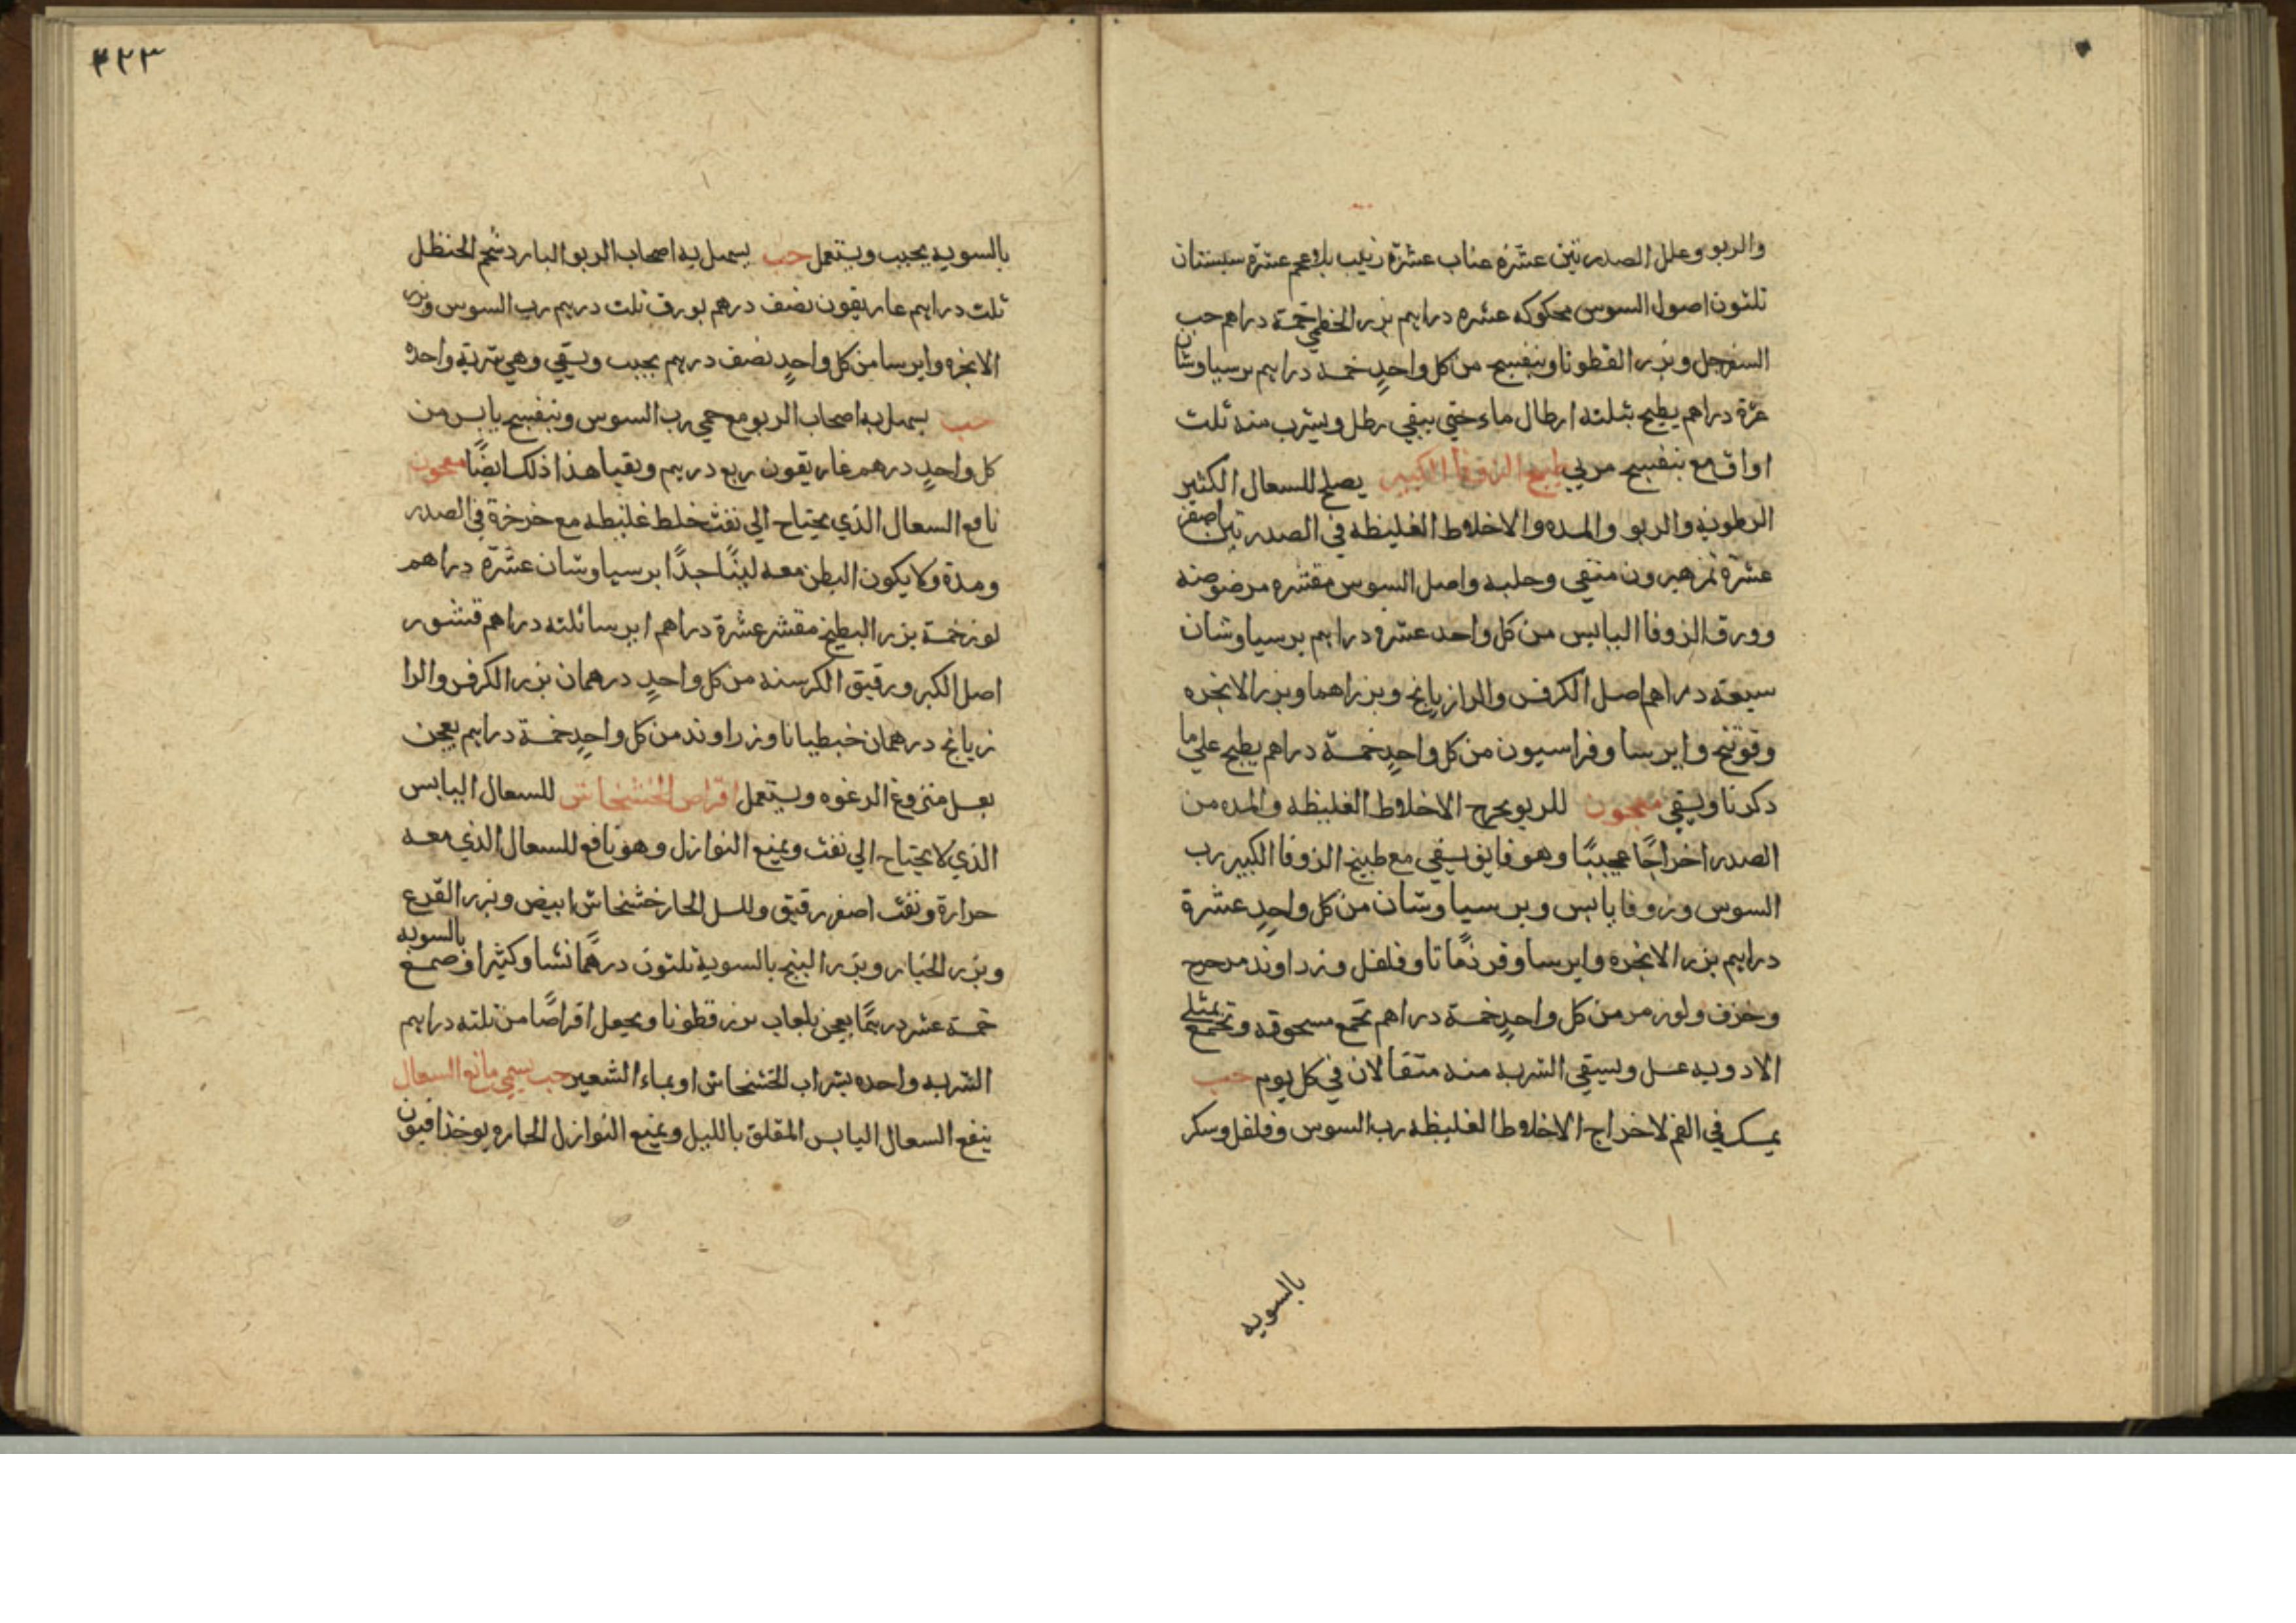 والربو وعلل الصدر تين عشرة عناب عشرة زبيب بلا عجم عشرة سبستان
ثلثون اصول السوس محكوكه عشره دراهم بزر الخطمي خمسة دراهم حب
السفرجل وبزر القطونا وبنفسج من كل واحدٍ خمسه دراهم برسياوشان
عشرة دراهم يطبخ بثلثه ارطال ماء حتي يبقي رطل ويشرب منه ثلث
اواق مع بنفسج مربي طبيخ الزوفا الكبير يصلح للسعال الكثير
الرطوبه والربو والمده والاخلاط الغليظه في الصدر تين اصفر
عشرة تمر هيرون منقي وحلبه واصل السوس مقشره مرضوضه
وورق الزوفا اليابس من كل واحد عشره دراهم برسياوشان
سبعه دراهم اصل الكرفس والرازيانج وبزراهما وبزر الانجره
وفوتنج وايرسا وفراسيون من كل واحدٍ خمسة دراهم يطبخ علي ما
ذكرنا ويسقي معجون للربو يخرج الاخلاط الغليظه والمده من
الصدر اخراجًا عجيبًا وهو فايق يسقي مع طبيخ الزوفا الكبير رب
السوس وزوفا يابس وبرسياوشان من كل واحدٍ عشرة
دراهم بزر الانجره وايرسا وقردمانا وفلفل وزراوند مدحرج
وخزف ولوز مر من كل واحدٍ خمسة دراهم تجمع مسحوقه وتجمع بمثلي
الادويه عسل ويسقي الشربه منه مثقالان في كل يوم حب
يمسك في الفم لاخراج الاخلاط الغليظه رب السوس وفلفل وسكر
بالسويه
٤٢٣
بالسويه يحبب ويستعمل حب يسهل به اصحاب الربو البارد شحم الحنظل
ثلث دراهم غاريقون نصف درهم بورق ثلث درهم رب السوس وبزر
الانجره وايرسا من كل واحدٍ نصف درهم يحبب ويسقي وهي شربة واحده
حب يسهل به اصحاب الربو مع حمي رب السوس وبنفسج يابس من
كل واحدٍ درهم غاريقون ربع درهم ويقيا هذا ذلك ايضًا معجون
نافع السعال الذي يحتاج الي نفث خلط غليظه مع خرخرة في الصدر
ومدة ولا يكون البطن معه لينًا جدًا برسياوشان عشرة دراهم
لوز خمسة بزر البطيخ مقشر عشرة دراهم ايرسا ثلثه دراهم قشور
اصل الكبر ورقيق الكرسنه من كل واحدٍ درهمان بزر الكرفس والرا
زيانج درهمان خبطيانا وزراوند من كل واحدٍ خمسة دراهم يعجن
بعسل منزوع الرغوه ويستعمل اقراص الخشخاش للسعال اليابس
الذي لا يحتاج الي نفث ويمنع النوازل وهو نافع للسعال الذي معه
حرارة ونفث اصفر رقيق وللسل الحار خشخاش ابيض وبزر القرع
وبزر الخيار وبزر البنج بالسوية ثلثون درهمًا نشا وكثيرا وصمغ بالسويه
خمسة عشر درهمًا يعجن بلعاب بزر قطونا ويجعل اقراصًا من ثلثه دراهم
الشربه واحده بشراب الخشخاش او بماء الشعير حب يسمي مانع السعال
ينفع السعال اليابس المقلق بالليل ويمنع النوازل الحاره يوخذ افيون